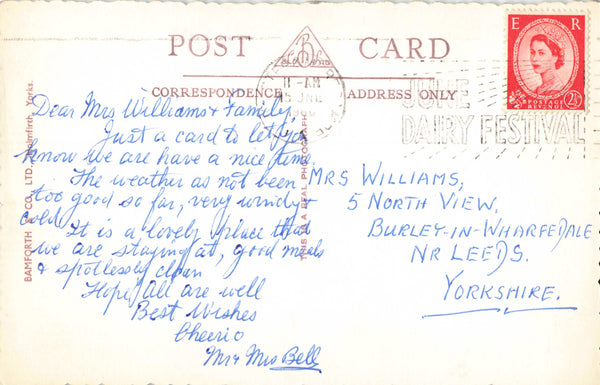 POST CARD
CORRESPONDENCE ADDRESS ONLY
E R
POSTAGE
REVENUE
2½
11-AM
15 JNE
JUNE
DAIRY FESTIVAL
BAMFORTH & CO., LTD., Holmfirth, Yorks.
THIS IS A REAL PHOTOGRAPH
Dear Mrs Williams & Family,
Just a card to let you
know we are have a nice time.
The weather as not been
too good so far, very windy &
cold. It is a lovely place that
we are staying at, good meals
& spotlessly clean
Hope All are well
Best Wishes
Cheerio
Mr & Mrs Bell
MRS WILLIAMS,
5 NORTH VIEW,
BURLEY-IN-WHARFEDALE
NR LEEDS.
YORKSHIRE.